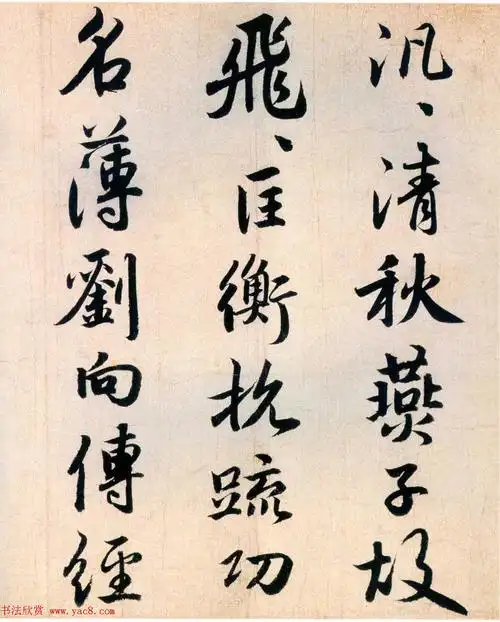 汎、清秋燕子故
飛、匡衡抗疏功
名薄劉向傳經
书法欣赏 www.yac8.com